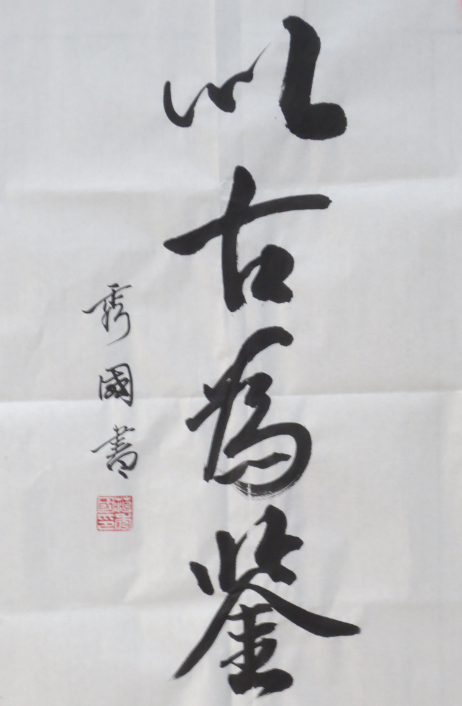 以古為鉴
秀國書